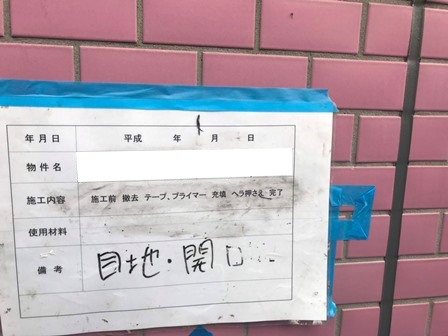 年月日 平成 年 月 日
物件名
施工内容 施工前 撤去 テープ、プライマー 充填 ヘラ押さえ 完了
使用材料
備考 目地・開口